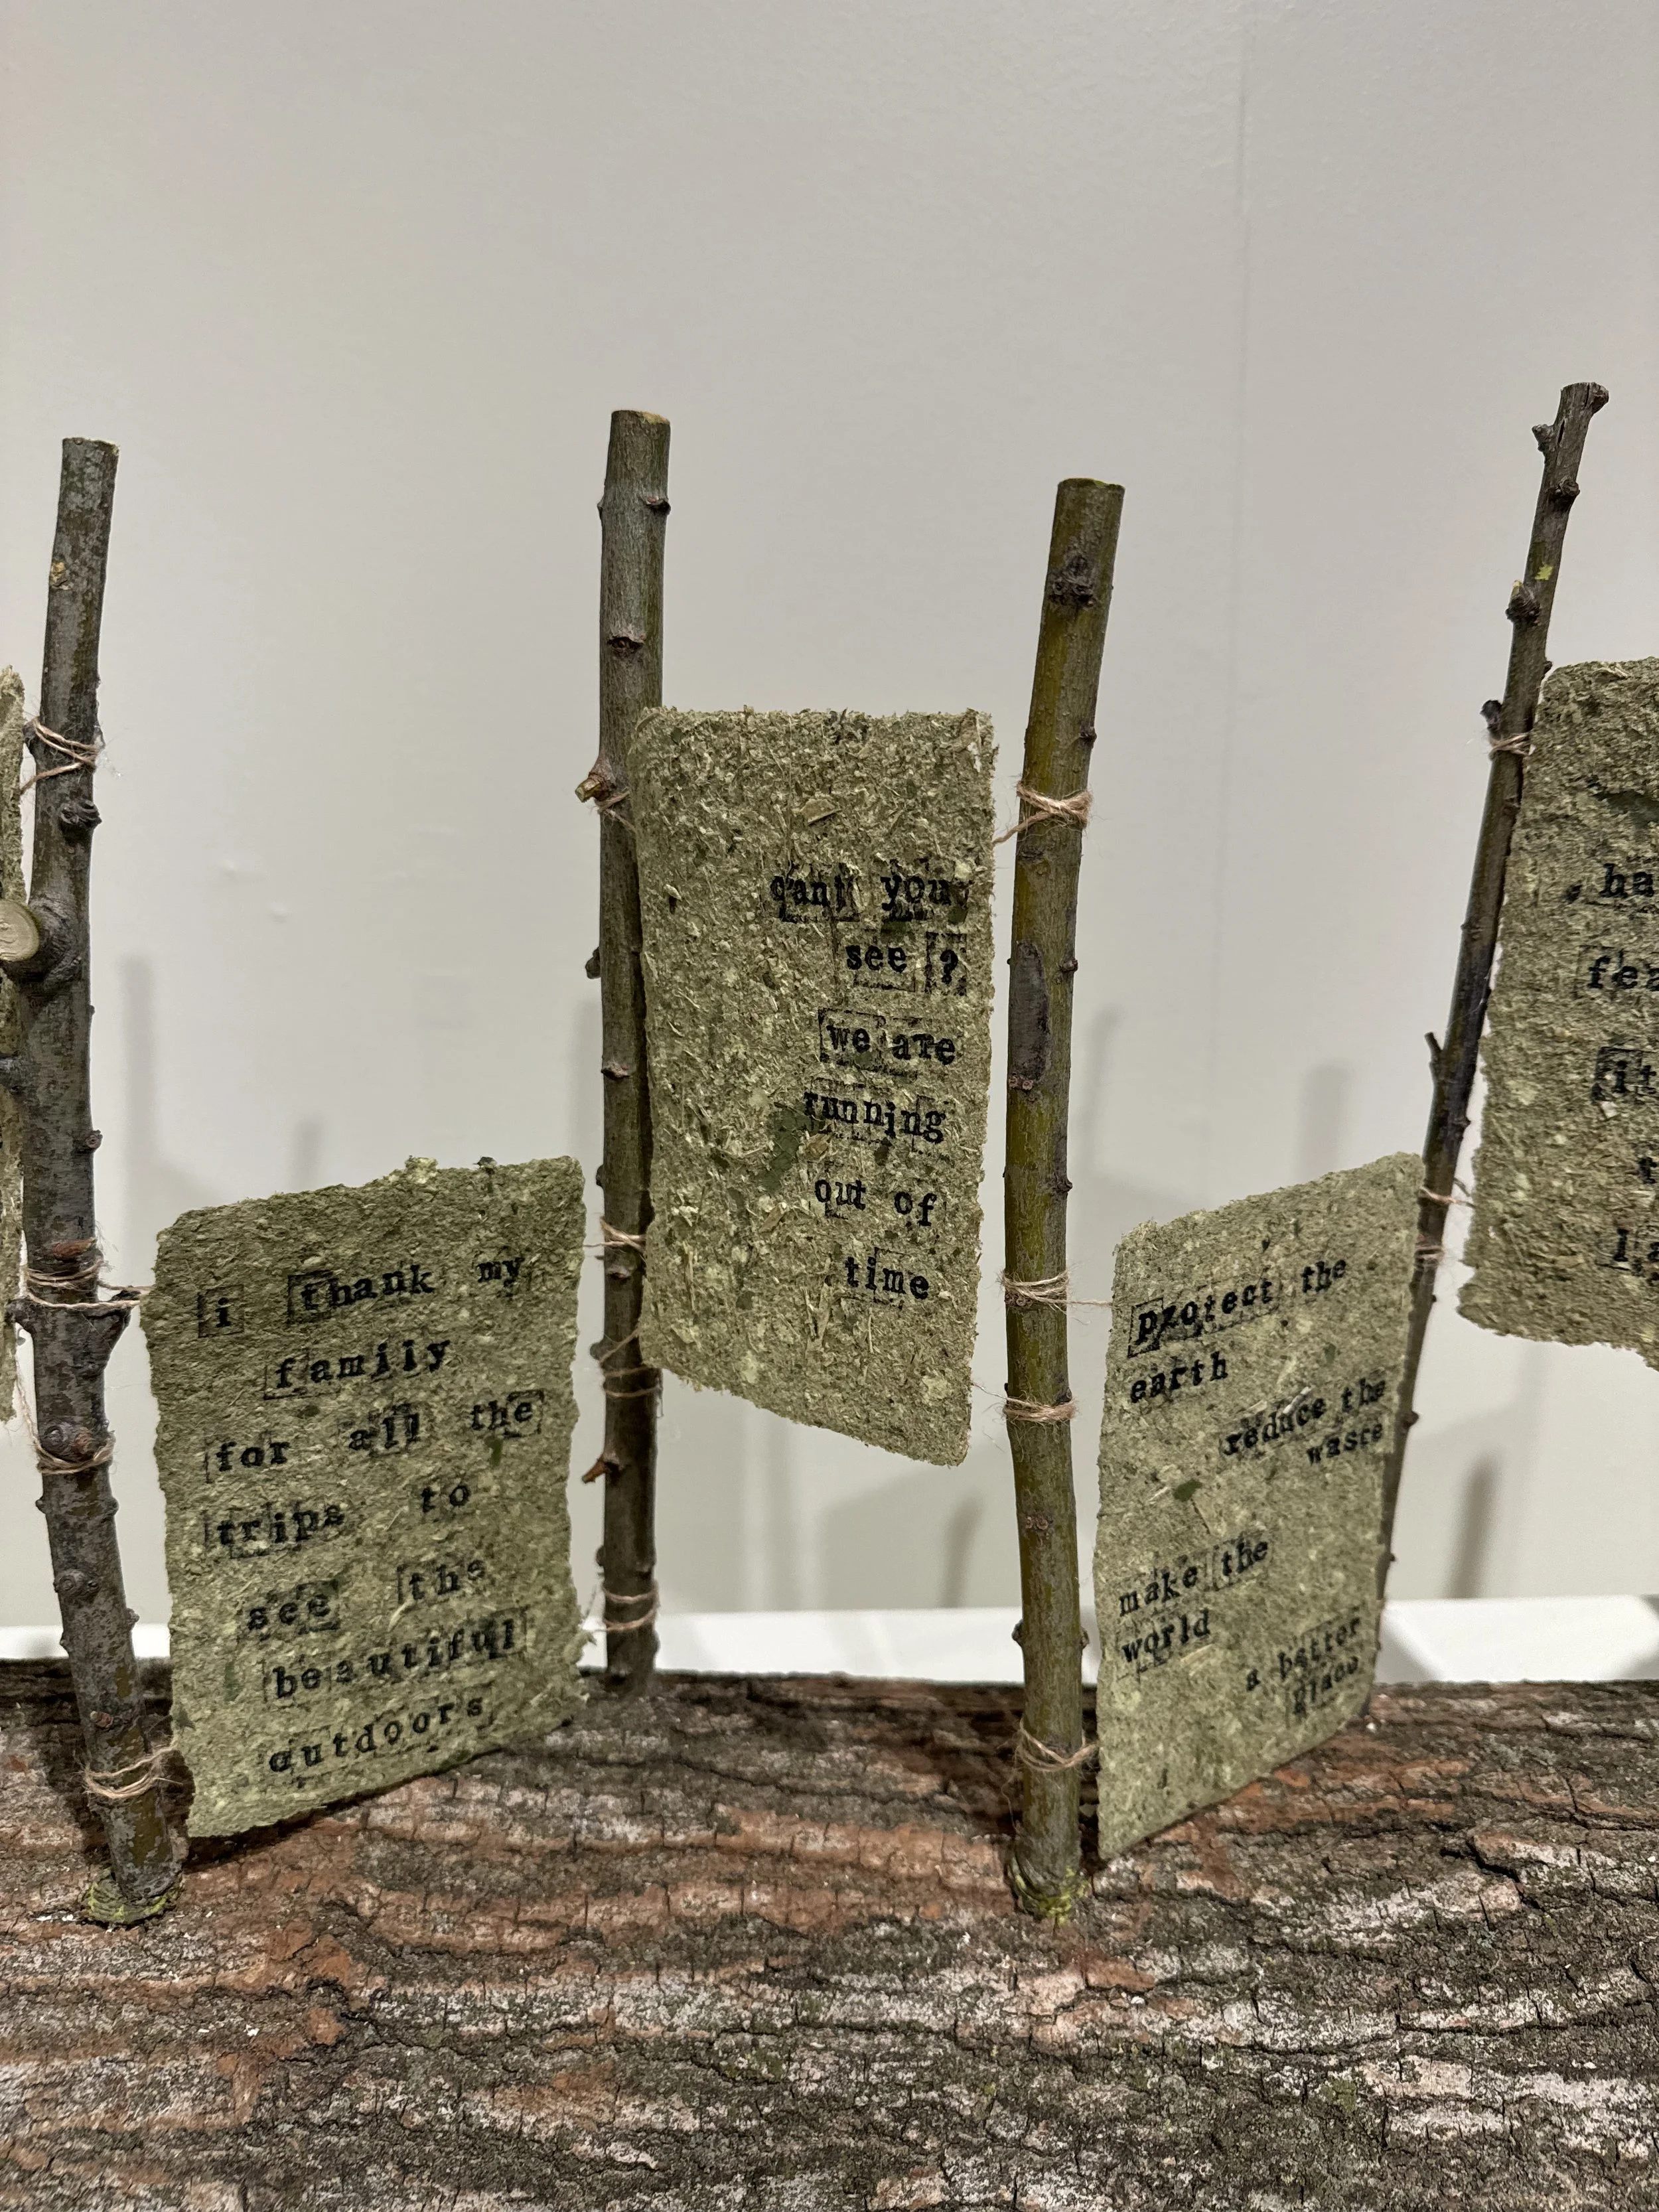 i thank my
family
for all the
trips to
see the
beautiful
outdoors
cant you
see ?
we are
running
out of
time
protect the
earth
reduce the
waste
make the
world
a better
place
ha
fea
it
t
la